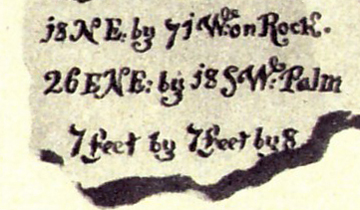 j8 N E: by 7j W.ds on Rock.
26 E N E: by j8 S W.ds Palm
7 feet by 7 Feet by 8